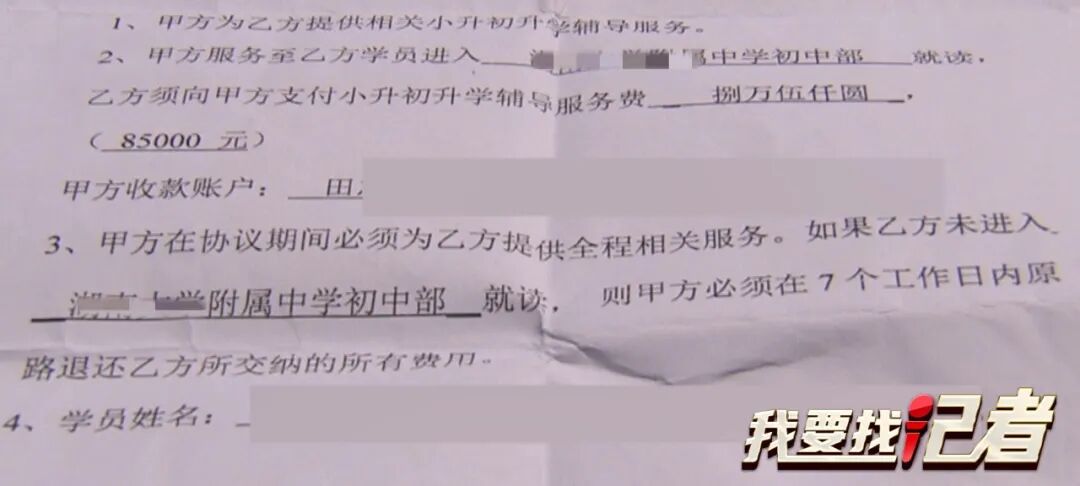 1、甲方为乙方提供相关小升初升学辅导服务。
2、甲方服务至乙方学员进入 附属中学初中部 就读,
乙方须向甲方支付小升初升学辅导服务费 捌万伍仟圆 ,
( 85000 元)
甲方收款账户: 田
3、甲方在协议期间必须为乙方提供全程相关服务。如果乙方未进入
附属中学初中部 就读, 则甲方必须在 7 个工作日内原
路退还乙方所交纳的所有费用。
4、学员姓名:
我要找记者